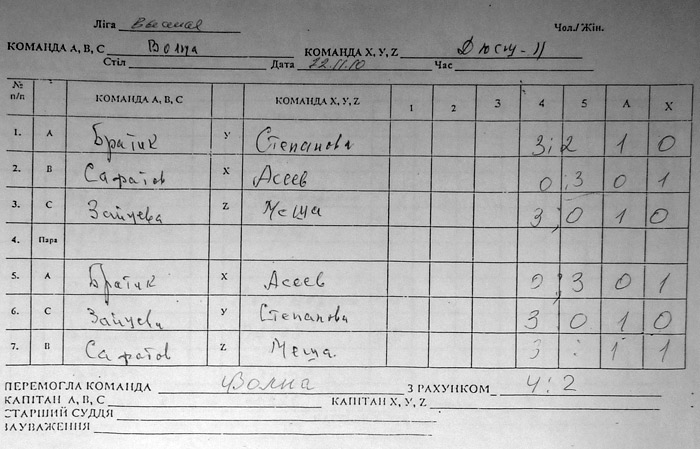 Ліга Высшая Чол./Жін.
КОМАНДА А, В, С Волна КОМАНДА X, У, Z Дюсш-11
Стіл Дата 22.11.10 Час
№ п/п КОМАНДА А, В, С КОМАНДА X, У, Z 1 2 3 4 5 А Х
1. А Братик У Степанова 3:2 1 0
2. В Саратов Х Асеев 0:3 0 1
3. С Зайцева Z Меша 3:0 1 0
4. Пара
5. А Братик Х Асеев 0:3 0 1
6. С Зайцева У Степанова 3 0 1 0
7. В Саратов Z Меша. 3:1 1
ПЕРЕМОГЛА КОМАНДА Волна З РАХУНКОМ 4:2
КАПІТАН А, В, С КАПІТАН X, У, Z
СТАРШИЙ СУДДЯ
ЗАУВАЖЕННЯ